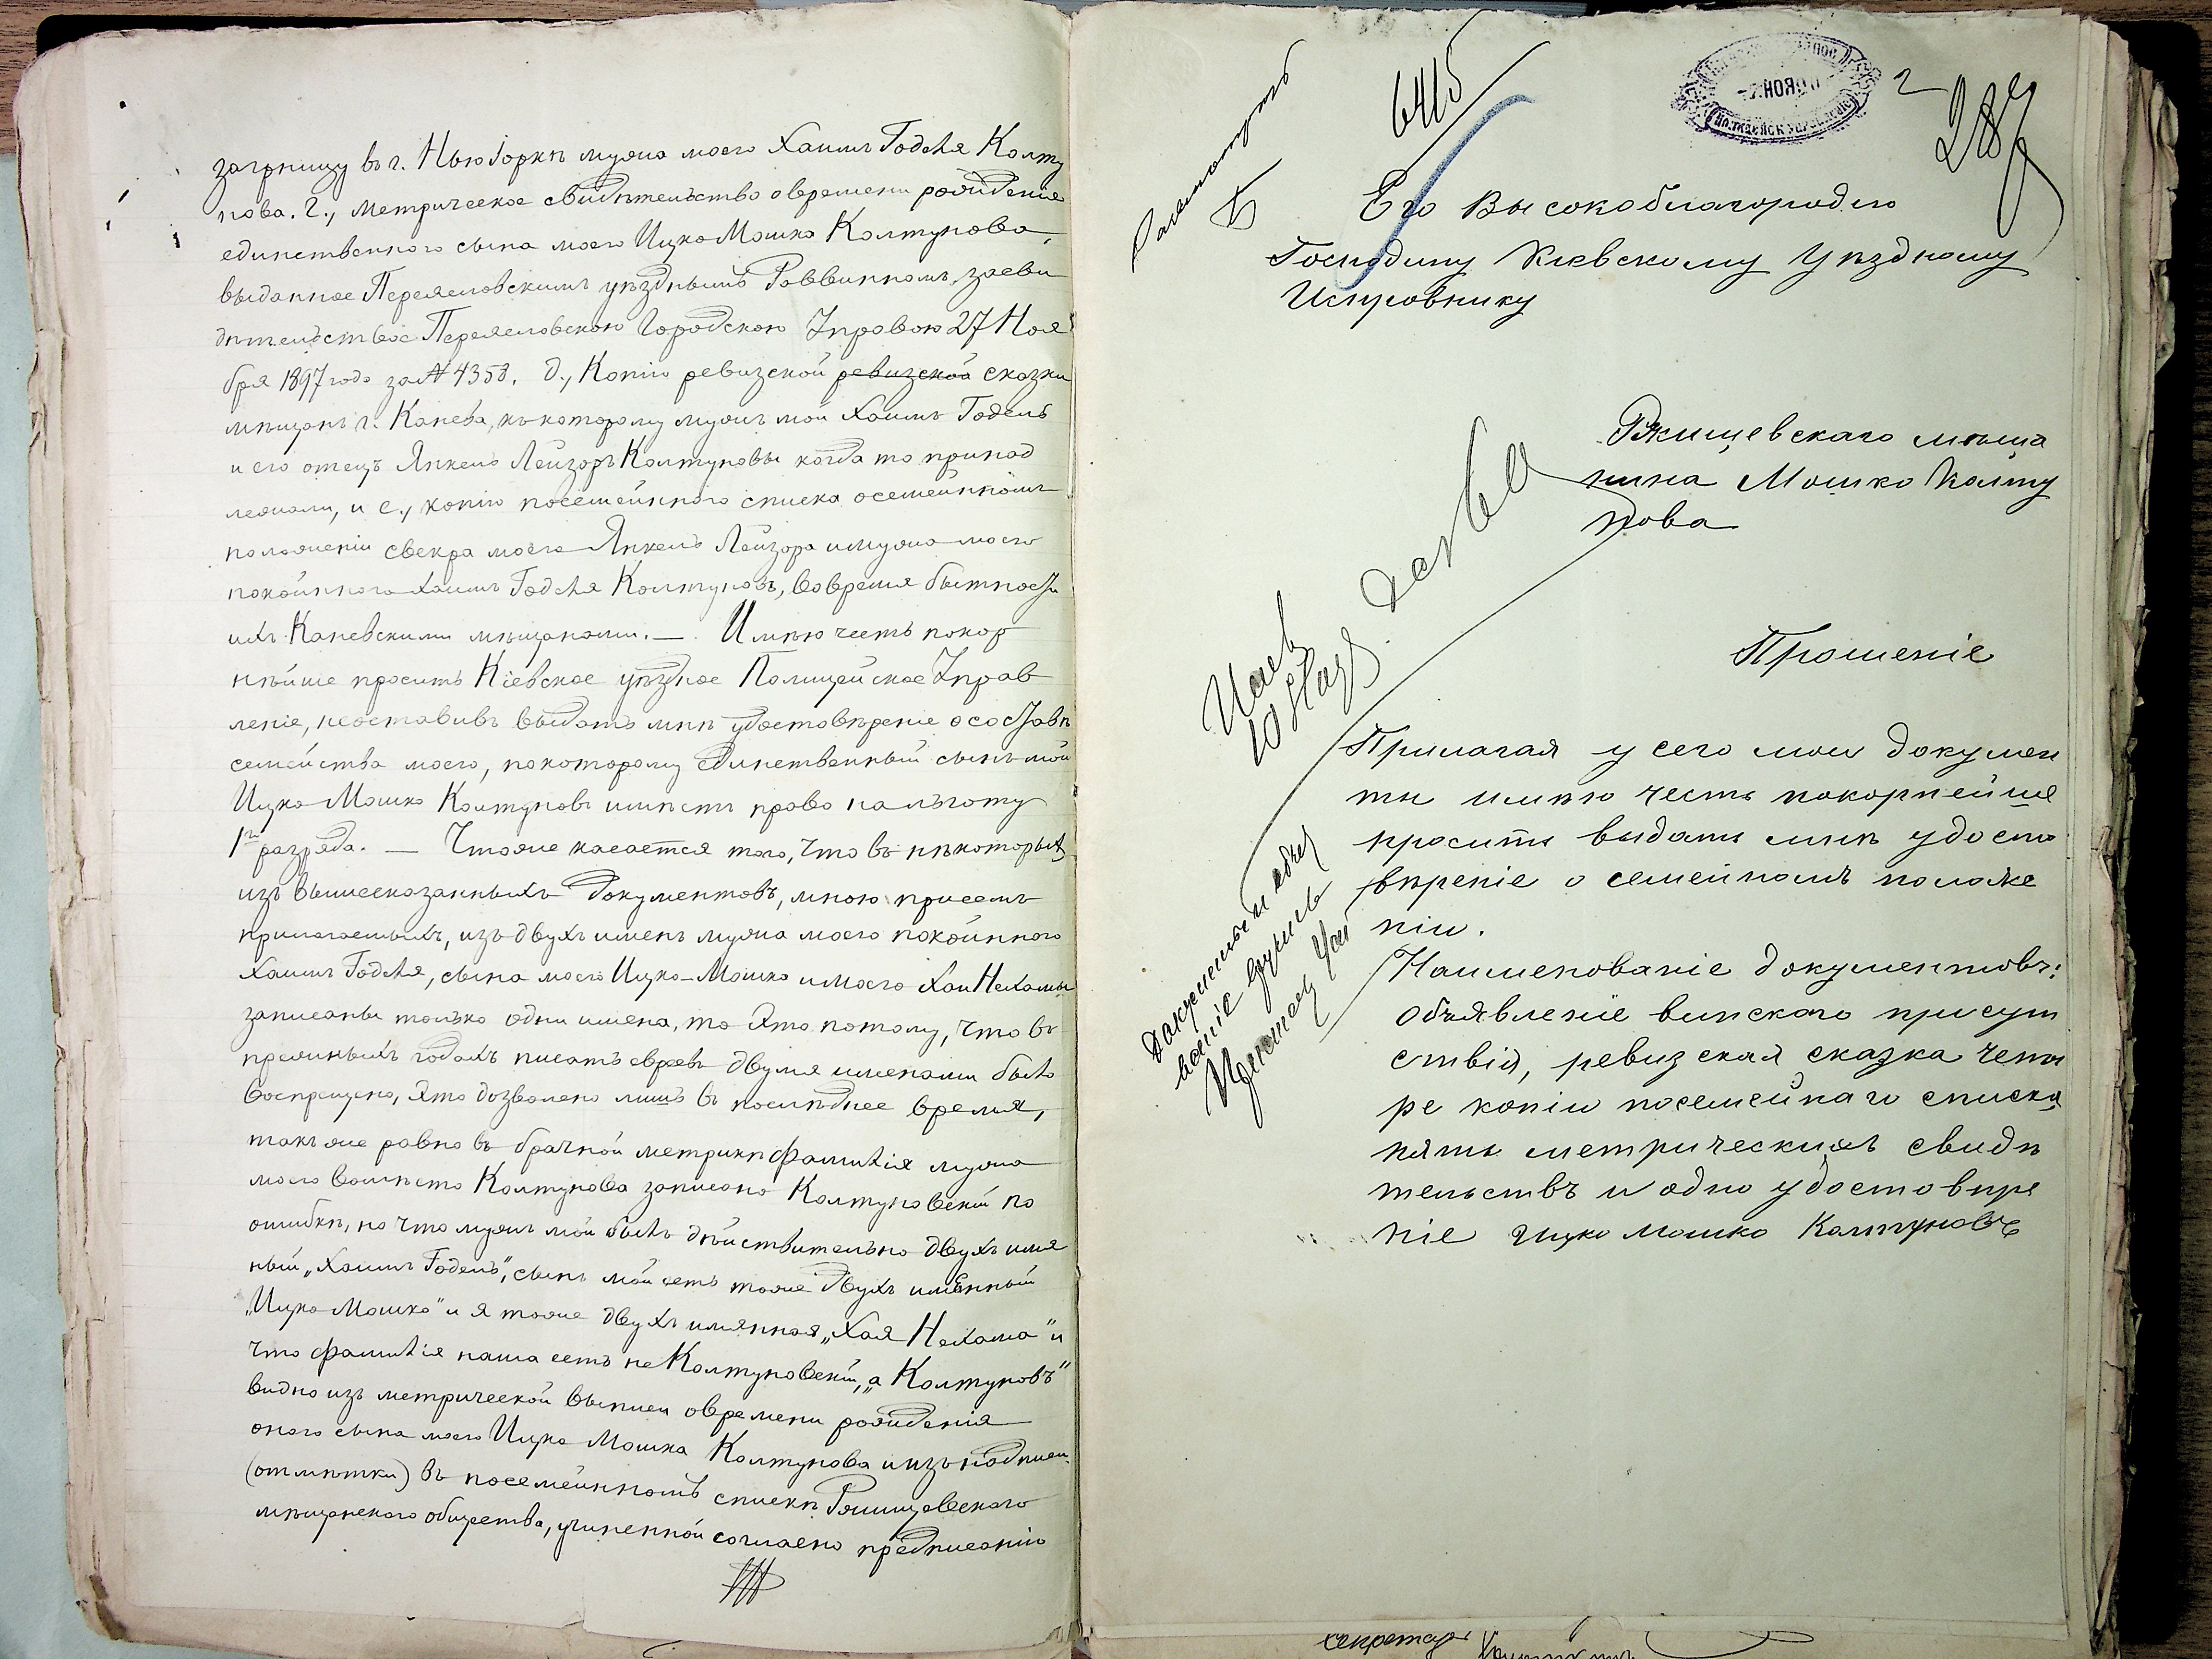 заграницу въ г. Нью Іоркѣ мужа моего Хаимъ Годеля Колту
нова. г., Метрическое свидѣтельство о времени рожденія
единственного сына моего Ицко Мошко Колтунова,
выданное Переяславскимъ уѣзднымъ Раввиномъ, засви
дѣтельствов. Переяславскою Городскою Управою 27 Ноя
бря 1897 года за № 4358. д., Копію ревизской ревизской сказки
мѣщанъ г. Канева, къ которому мужъ мой Хаимъ Годель
и его отецъ Янкель Лейзоръ Колтуновы когда то принад
лежали, и е., копію посемейнного списка о семейнномъ
положеніи свекра моего Янкель Лейзора и мужа моего
покойнного Хаимъ Годеля Колтуновъ, во время бытности
ихъ Каневскими мѣщанами. — Имѣю честь покор
нѣйше просить Кіевское уѣздное Полицейское Управ
леніе, неоставивъ выдать мнѣ удостовѣреніе о составѣ
семейства моего, по которому единственный сынъ мой
Ицко-Мошко Колтуновъ имѣетъ право на льготу
1го разряда. — Чтоже касается того, что въ нѣкоторыхъ
изъ вышесказанныхъ документовъ, мною присемъ
прилагаемыхъ, изъ двухъ именъ мужа моего покойнного
Хаимъ Годеля, сына моего Ицко-Мошко и моего Хаи Нехамы
записаны только одни имена, то это потому, что въ
прежнихъ годахъ писать евреевъ двумя именами было
воспрещено, это дозволено лишь въ послѣднее время,
такъ же равно въ брачной метрикѣ фамилія мужа
моего вомѣсто Колтунова записано Колтуновскій по
ошибкѣ, но что мужъ мой былъ дѣйствительно двухъ имя
ный „Хаимъ Годель", сынъ мой есть тоже двухъ именный
„Ицко Мошко" и я тоже двухъ имянная „Хая Нехама" и
что фамилія наша есть не Колтуновскій, „а Колтуновъ"
видно изъ метрической выписи о времени рожденія
оного сына моего Ицко Мошка Колтунова и изъ надписи
(отмѣтки) въ посемейнномъ спискѣ Ржищевского
мѣщанского общества, учиненной согласно предписанію
Разсмотрѣть
6415
287
Его Высокоблагородію
Господину Кіевскому Уѣздному
Исправнику
Ржищевскаго мѣща
нина Мошко Колту
нова
Прошеніе
Прилагая у сего мои докумен
ты имѣю честь покорнейше
просить выдать мнѣ удосто
вѣреніе о семейномъ положе
ніи.
Наименованіе документовъ:
объявленіе винского присут
ствія, ревизская сказка четы
ре копіи посемейнаго списка
пять метрическихъ свидѣ
тельствъ и одно удостовѣре
ніе Ицко Мошко Колтуновъ
секретарь